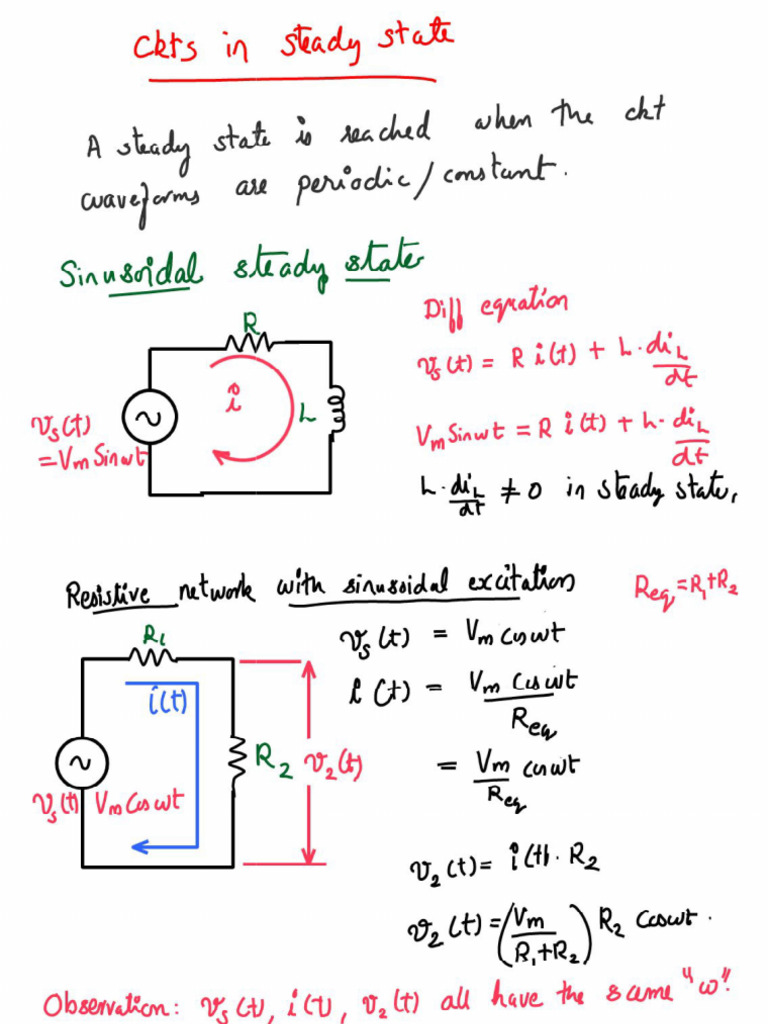 Ckts in steady state
A steady state is reached when the ckt
waveforms are periodic/constant.
Sinusoidal steady state
Diff equation
R
v_s(t) = R i(t) + L · di_L/dt
i
L
v_s(t)
= V_m Sin ωt
V_m Sin ωt = R i(t) + L · di_L/dt
L · di_L/dt ≠ 0 in steady state,
Resistive network with sinusoidal excitation
R_eq = R_1 + R_2
R_1
v_s(t) = V_m Cos ωt
i(t)
i(t) = V_m Cos ωt / R_eq
R_2
v_2(t)
= V_m / R_eq cos ωt
v_s(t) V_m Cos ωt
v_2(t) = i(t) · R_2
v_2(t) = (V_m / R_1 + R_2) R_2 Cos ωt .
Observation: v_s(t), i(t), v_2(t) all have the same "ω".